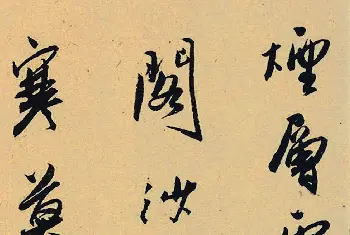 煙層
閣沙
寒